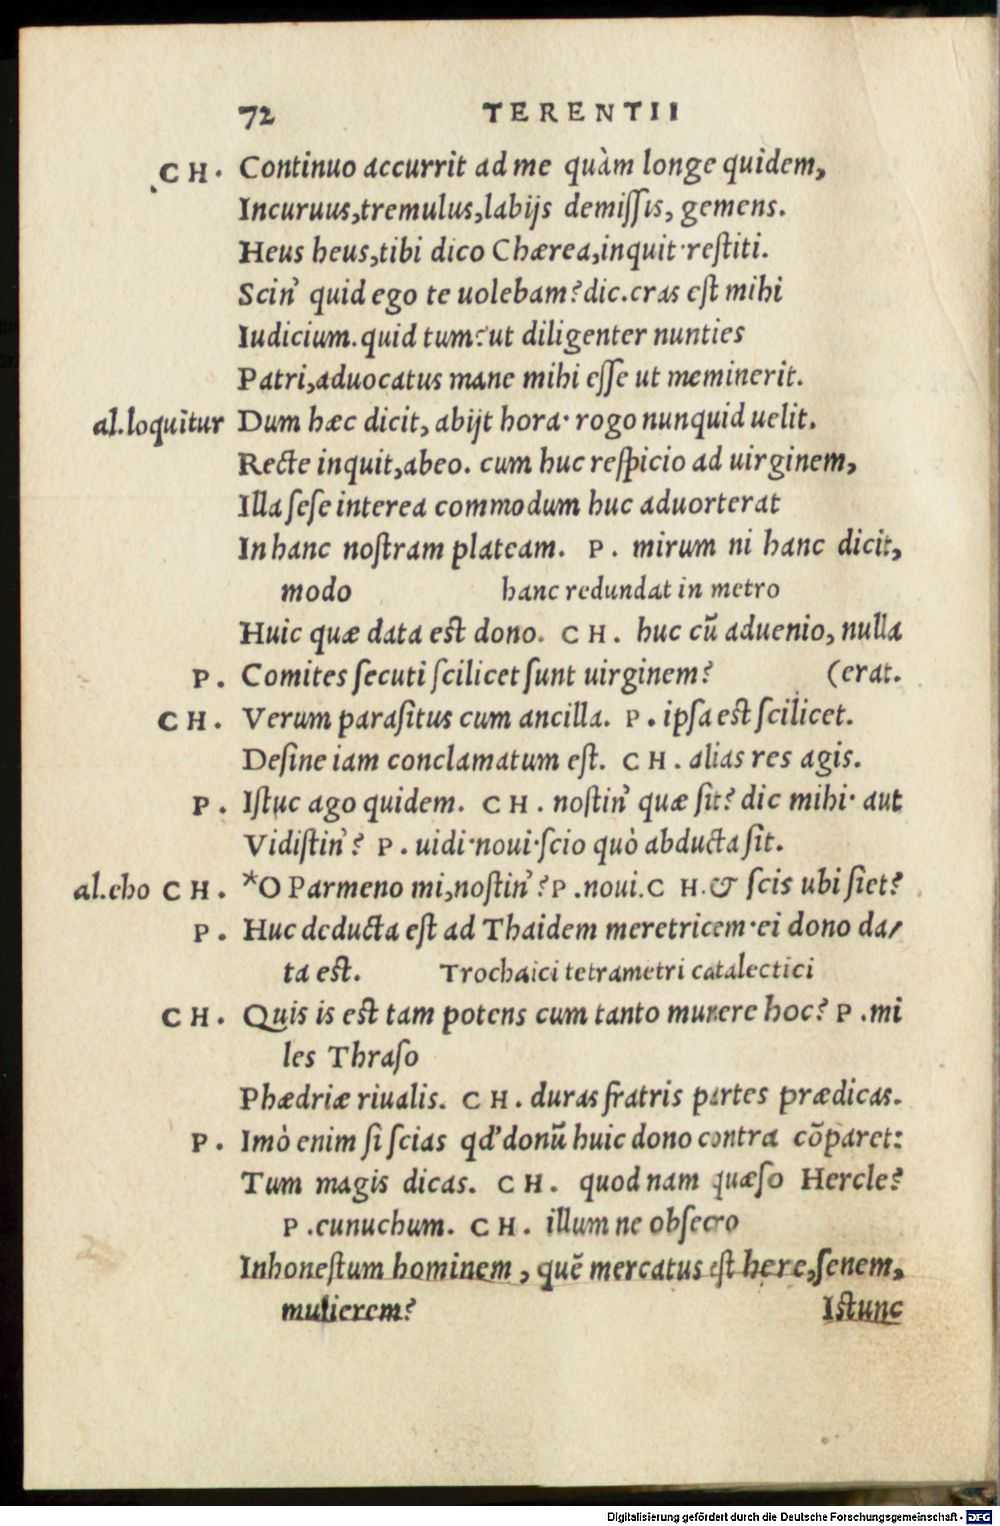 72 TERENTII
CH. Continuo accurrit ad me quàm longe quidem,
Incuruus,tremulus,labijs demißis, gemens.
Heus heus,tibi dico Chærea,inquit·restiti.
Scin' quid ego te uolebam?dic.cras est mihi
Iudicium.quid tum?ut diligenter nunties
Patri,aduocatus mane mihi esse ut meminerit.
al.loquitur Dum hæc dicit, abijt hora· rogo nunquid uelit.
Recte inquit,abeo. cum huc respicio ad uirginem,
Illa sese interea commodum huc aduorterat
In hanc nostram plateam. P. mirum ni hanc dicit,
modo hanc redundat in metro
Huic quæ data est dono. CH. huc cū aduenio, nulla
P. Comites secuti scilicet sunt uirginem? (erat.
CH. Verum parasitus cum ancilla. P. ipsa est scilicet.
Desine iam conclamatum est. CH. alias res agis.
P. Istuc ago quidem. CH. nostin' quæ sit? dic mihi· aut
Vidistin'? P. uidi·noui·scio quò abducta sit.
al.eho CH. *O Parmeno mi,nostin'?P.noui.CH.& scis ubi siet?
P. Huc deducta est ad Thaidem meretricem·ei dono da/
ta est. Trochaici tetrametri catalectici
CH. Quis is est tam potens cum tanto munere hoc? P.mi
les Thraso
Phædriæ riualis. CH. duras fratris partes prædicas.
P. Imò enim si scias qd' donū huic dono contra cōparet:
Tum magis dicas. CH. quod nam quæso Hercle?
P.eunuchum. CH. illum ne obsecro
Inhonestum hominem, quē mercatus est here,senem,
mulierem? Istunc
Digitalisierung gefördert durch die Deutsche Forschungsgemeinschaft - DFG